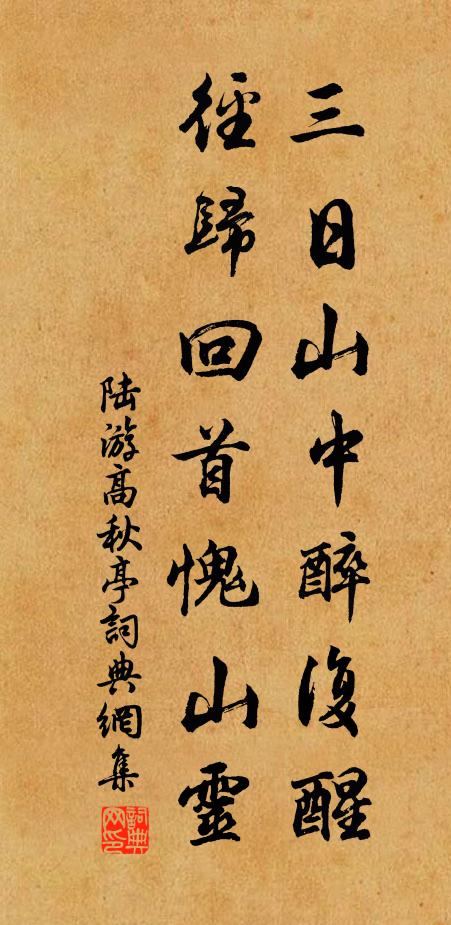 三日山中醉復醒
徑歸回首愧山靈
陸游高秋亭詞典網集
詞典網印